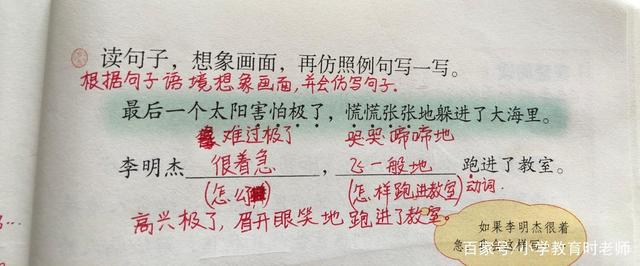 读句子，想象画面，再仿照例句写一写。
根据句子语境想象画面,并会仿写句子.
最后一个太阳害怕极了，慌慌张张地躲进了大海里。
难过极了 哭哭啼啼地
李明杰 很着急 ， 飞一般地 跑进了教室。
(怎么 ) (怎样跑进教室) 动词.
高兴极了, 眉开眼笑地 跑进了教室。
如果李明杰很着
急
百家号/小学教育时老师